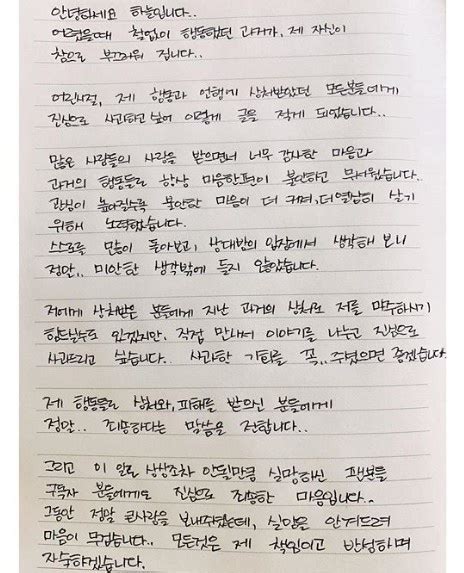 안녕하세요 하늘입니다..
어렸을때 철없이 행동했던 과거가, 제 자신이
참으로 부끄러워 집니다..
어린시절, 제 행동과 언행에 상처받았던 모든분들에게
진심으로 사과하고 싶어 이렇게 글을 적게 되었습니다..
많은 사람들의 사랑을 받으면서 너무 감사한 마음과
과거의 행동들로 항상 마음한편이 불안하고 무서웠습니다..
관심이 높아질수록 불안한 마음이 더 커져, 더 열심히 살기
위해 노력했습니다.
스스로를 많이 돌아보고, 상대방의 입장에서 생각해 보니
정말.. 미안한 생각밖에 들지 않았습니다.
저에게 상처받은 분들에게 지난 과거의 상처로 저를 마주하시기
힘드실수도 있겠지만, 직접 만나서 이야기를 나누고 진심으로
사과드리고 싶습니다.. 사과할 기회를 꼭.. 주셨으면 좋겠습니다
제 행동들로 상처와, 피해를 받으신 분들에게
정말.. 죄송하다는 말씀을 전합니다..
그리고 이 일로 상상조차 안될만큼 실망하신 팬분들
구독자 분들에게도 진심으로 죄송한 마음입니다.
그동안 정말 큰사랑을 보내주셨는데, 실망을 안겨드려
마음이 무겁습니다.. 모든것은 제 책임이고 반성하며
자숙하겠습니다.